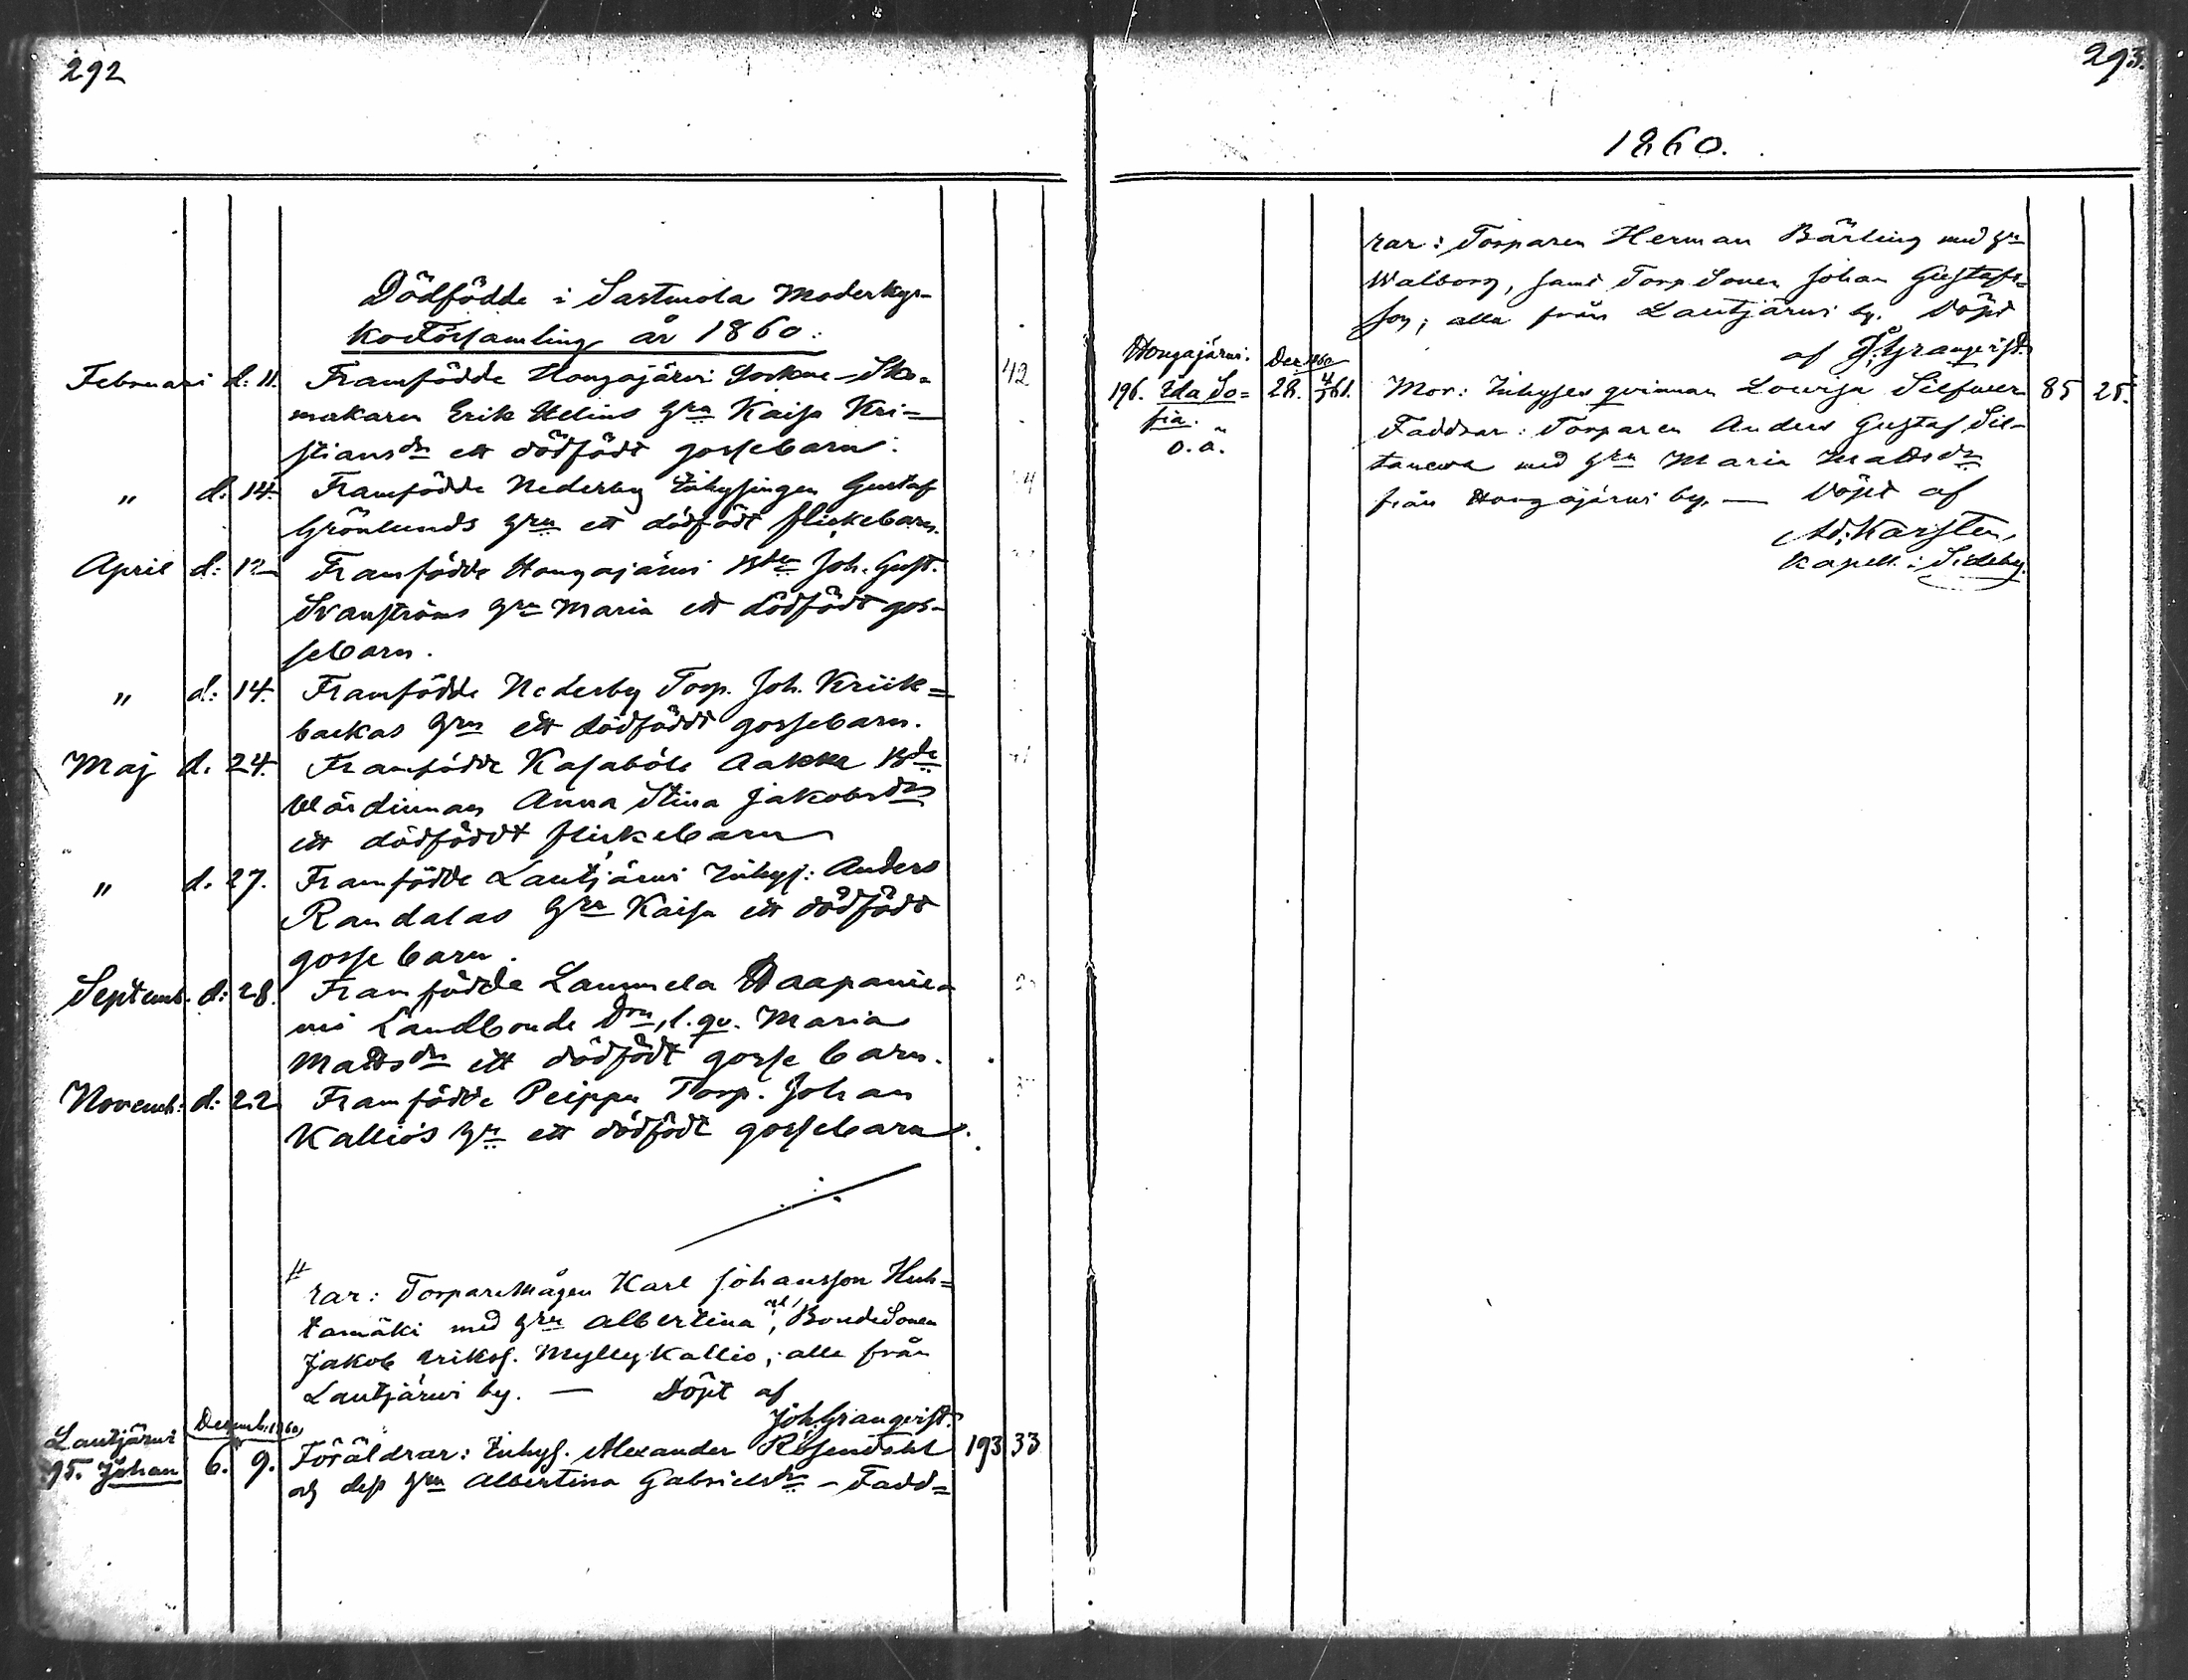 292
Dödfödde i Sastmola Moderkyr-
koförsamling år 1860:
Februari d: 11. Framfödde Hongajärvi Sockne-Sko- 42
makaren Erik Helins Hru Kaisa Kri=
stiansdr ett dödfödt gossebarn.
" d: 14. Framfödde Nederby Inhysingen Gustaf
Grönlunds Hru ett dödfödt flickebarn.
April d: 12 Framfödde Hongajärvi Joh. Gust.
Svanströms Hru Maria ett dödfödt gos-
sebarn.
" d: 14. Framfödde Nederby Torp. Joh. Kriik=
backas Hru ett dödfödt gossebarn.
Maj d. 24. Framfödde Kasaböle Aakke
Wärdinnan Anna Stina Jakobsdr
ett dödfödt flickebarn
" d. 27. Framfödde Lautjärvi Inhys: Anders
Randalas Hru Kaisa ett dödfödt
gossebarn.
Septemb. d: 28. Framfödde Lammela Haapanie-
mi Landbonde Drn, l. qv. Maria
Mattsdr ett dödfödt gossebarn.
Novemb: d: 22 Framfödde Peippu Torp. Johan
Kallios Hru ett dödfödt gossebarn.
# rar: Torparemågen Karl Johansson Huh=
tamäki med Hru Albertina, Bondesonen
Jakob Eriks. Myllykallio; alla från
Lautjärvi by. — Döpt af
Joh. Granqvist.
Lautjärvi Decemb. 1860
95. Johan 6. 9. Föräldrar: Inhys. Alexander Rosendahl 193 33
och dess Hru Albertina Gabrielsdr - Fadd=
293.
1860.
rar: Torparen Herman Bärling med Hru
Walborg, samt Torp Sonen Johan Gustafs=
son; alla från Lautjärvi by. Döpt
af J. Granqvist.
Hongajärvi. Dec. 1860
196. Ida So= 28. 4/3 61. Mor: Inhyses qvinnan Lovisa Silfver 85 25.
fia. Faddrar: Torparen Anders Gustaf Sil-
o. ä. taneva med Hru Maria Mattsdr
från Hongajärvi by. — Döpt af
Ad. Karsten,
Kapell. i Sideby.